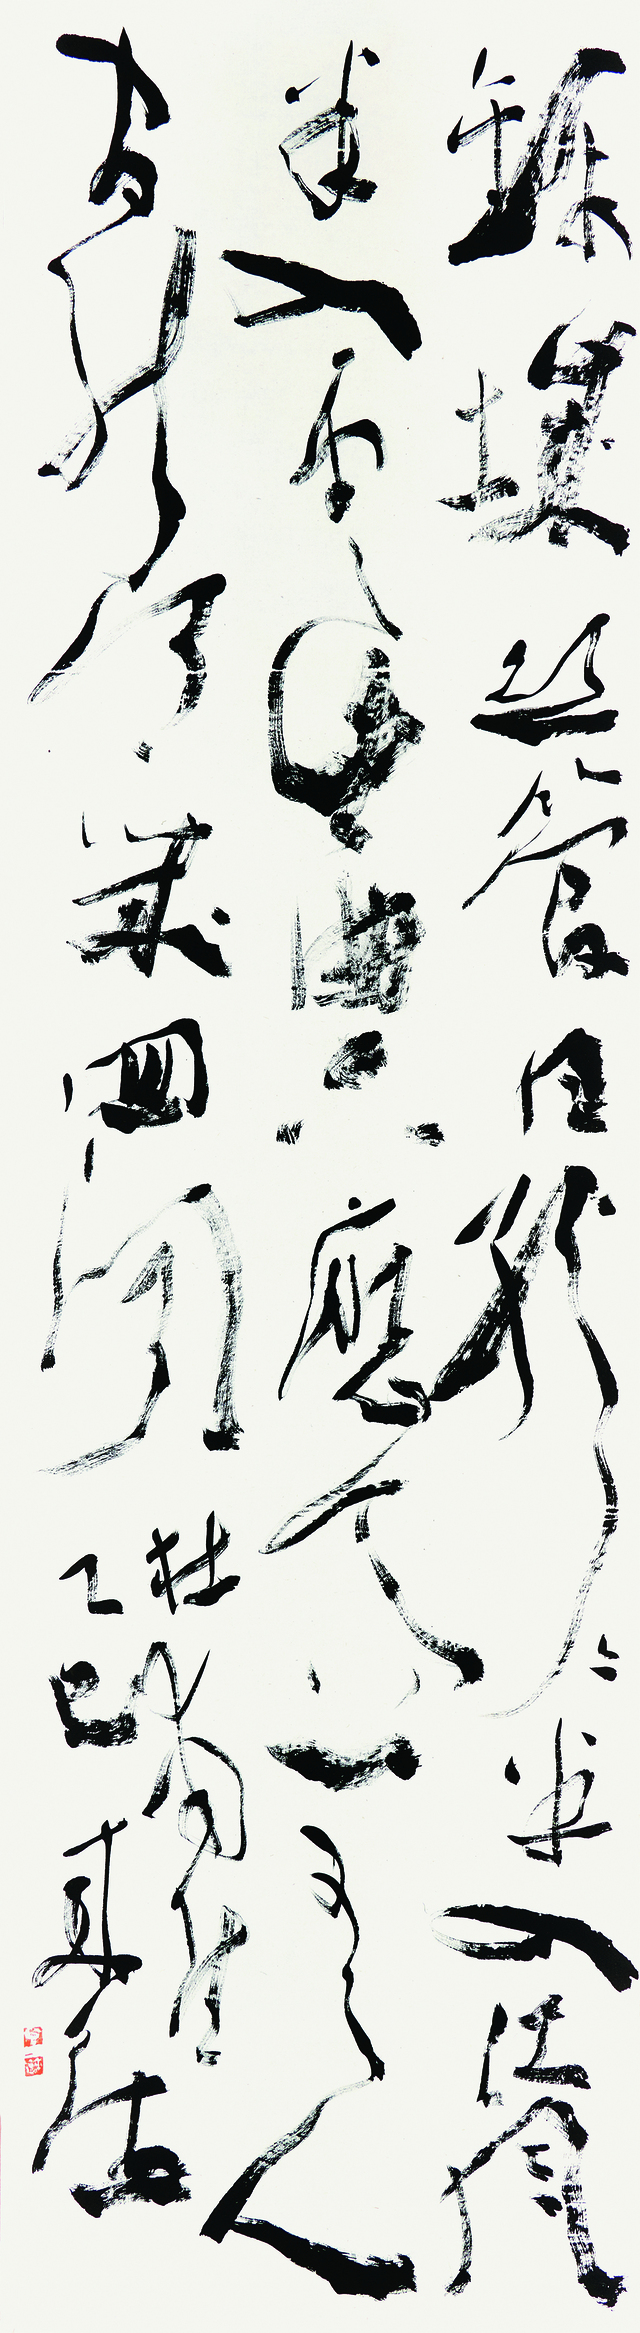 錦城丝管日紛〻半入江風
半入雲此曲只應天上有人
間能得幾囬聞
杜甫
乙巳